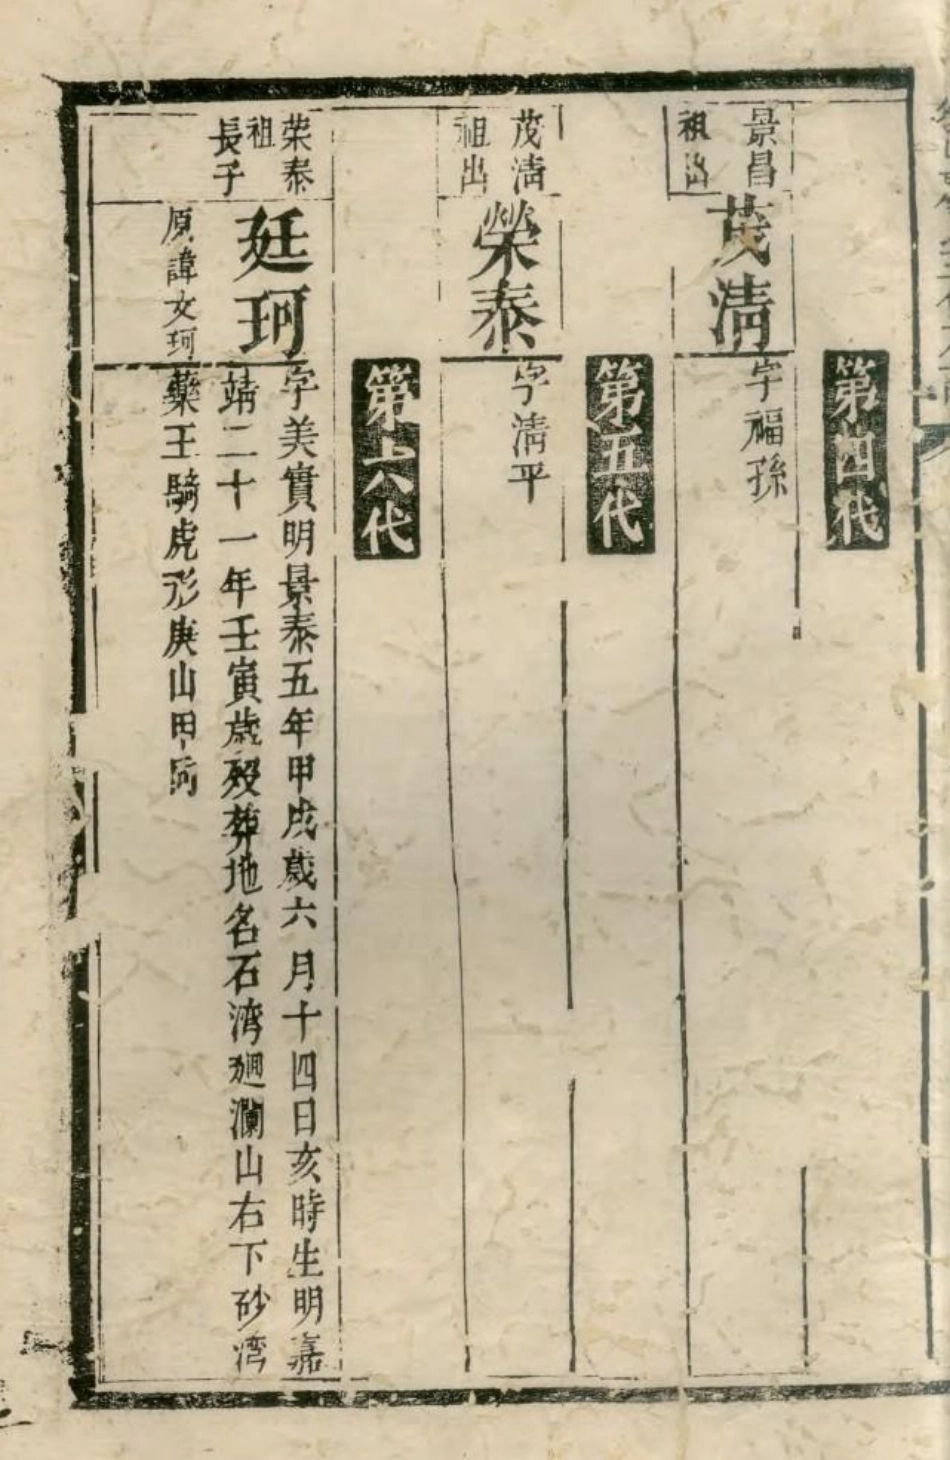 第四代
景昌
祖出
茂清
字福孫
第五代
茂清
祖出
榮泰
字清平
第六代
荣泰
祖
長子
廷珂
原諱文珂
字美實明景泰五年甲戌歲六月十四日亥時生明嘉
靖二十一年壬寅歲歿葬地名石湾廻瀾山右下砂湾
藥王騎虎形庚山甲向